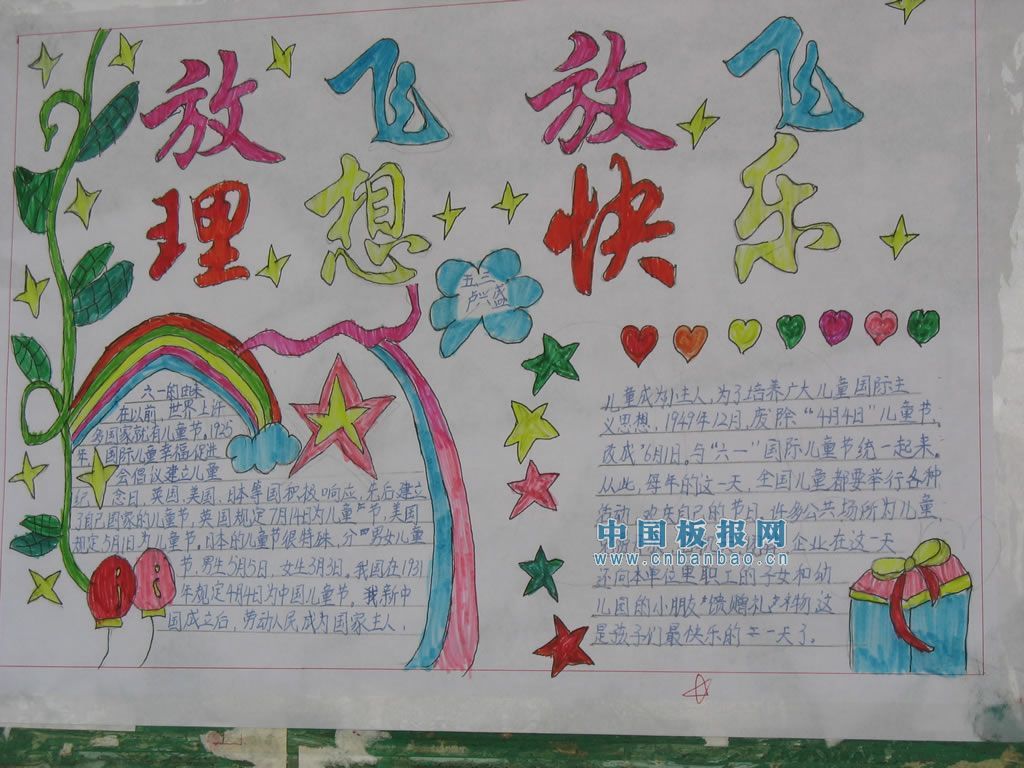 放飞 放飞
理想 快乐
五三
卢兴盛
六一的由来
在以前，世界上许
多国家就有儿童节。1925
年，国际儿童幸福促进
会倡议建立儿童
纪念日，英国，美国，日本等国积极响应，先后建立
了自己国家的儿童节，英国规定7月14日为儿童节，美国
规定5月1日为儿童节。日本的儿童节很特殊，分男女儿童
节，男生5月5日，女生3月3日。我国在1931
年规定4月4日为中国儿童节。我新中
国成立后，劳动人民成为国家主人，
儿童成为小主人，为了培养广大儿童国际主
义思想，1949年12月，废除“4月4日”儿童节，
改成6月1日。与“六一”国际儿童节统一起来。
从此，每年的这一天，全国儿童都要举行各种
活动，欢庆自己的节日。许多公共场所为儿童
企业在这一天
还向本单位里职工的子女和幼
儿园的小朋友馈赠礼物，这
是孩子们最快乐的一天了。
中国板报网
www.cnbanbao.cn